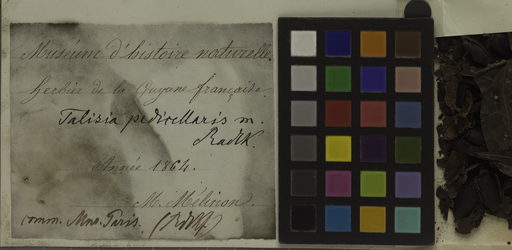 Muséum d'histoire naturelle.
Herbier de la Guyane française.
Talisia pedicellaris m.
Radlk.
Année 1864.
M. Mélinon.
comm. Mus. Paris. (Radlk)